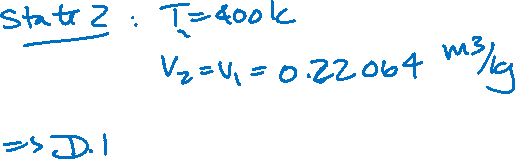 State 2 : T₂=400K
V₂=V₁=0.22064 m³/kg
=> D.1